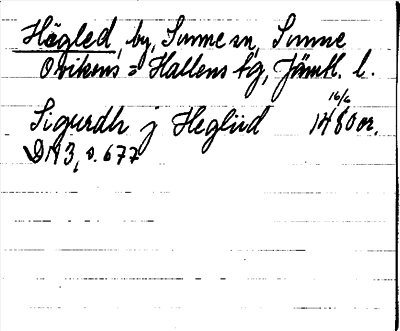 Hägled, by, Sunne sn, Sunne
Ovikens o Hallens tg, Jämtl. l.
16/6
Sigurdh j Heglidd 1480 or.
DN 3, s. 677